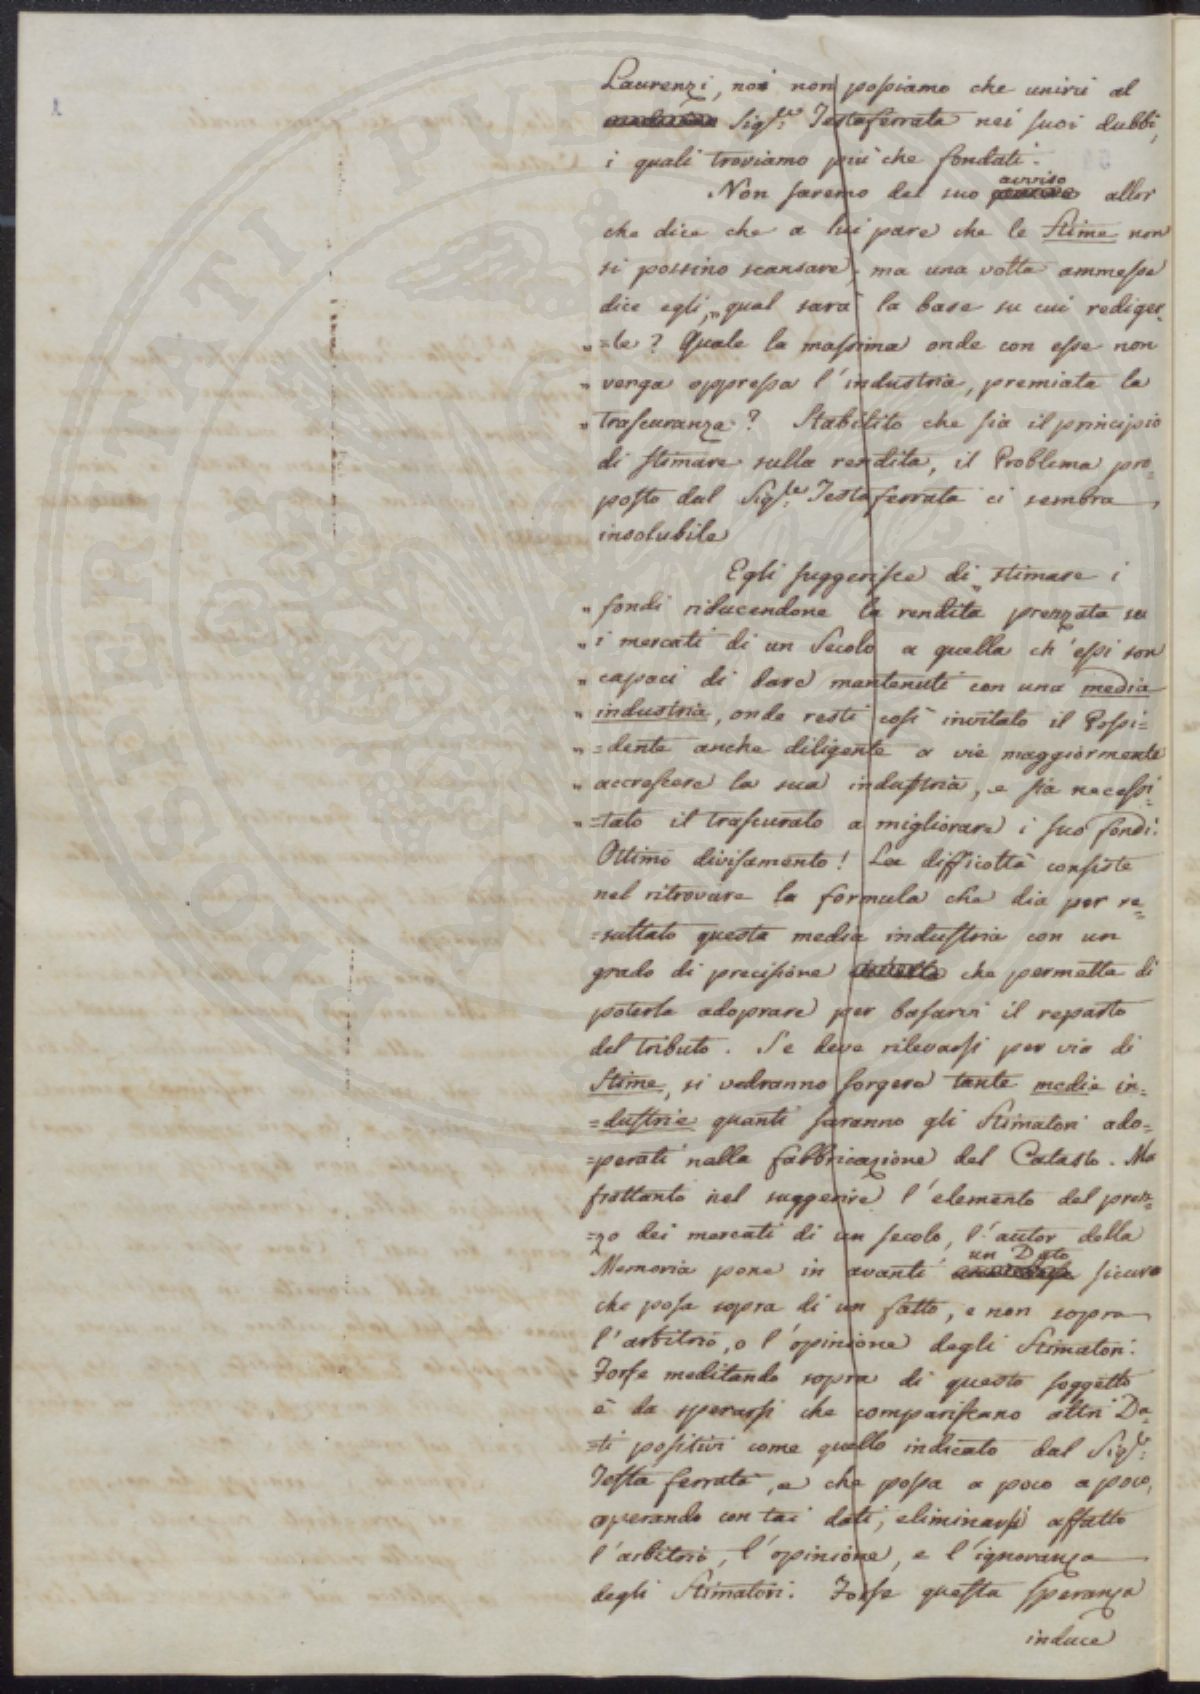 Laurenzi, noi non possiamo che unirci al
Sig.re Testaferrata nei suoi dubbi,
i quali troviamo piu che fondati.
Non saremo del suo avviso allor
che dice che a lui pare che le Stime non
si possino scansare, ma una volta ammesse
dice egli, „qual sara la base su cui rediger-
„=le? Quale la massima onde con esse non
„ venga oppressa l'industria, premiata la
„ trascuranza? Stabilito che sia il principio
di stimare sulla rendita, il Problema pro-
posto dal Sig.re Testaferrata ci sembra
insolubile
Egli suggerisce di „stimare i
„ fondi riducendone la rendita prezzata su
„ i mercati di un Secolo a quella ch'essi son
„ capaci di dare mantenuti con una media
„ industria, onde resti così invitato il Possi=
„ =dente anche diligente a vie maggiormente
„ accrescere la sua industria, e sia necessi=
„ =tato il trascurato a migliorare i suo fondi.
Ottimo divisamento! La difficoltà consiste
nel ritrovare la formula che dia per re=
=sultato questa media industria con un
grado di precisione che permetta di
poterla adoprare per basarvi il reparto
del tributo. Se deve rilevarsi per via di
Stime, si vedranno sorgere tante medie in=
=dustrie quanti saranno gli Stimatori ado=
=perati nella fabbricazione del Catasto. Ma
frattanto nel suggerire l'elemento del prez=
=zo dei mercati di un secolo, l'autor della
Memoria pone in avanti un Dato sicuro
che posa sopra di un fatto, e non sopra
l'arbitrio, o l'opinione degli Stimatori.
Forse meditando sopra di questo soggetto
è da sperarsi che compariscano altri Da=
=ti positivi come quello indicato dal Sig.re
Testa ferrata, e che possa a poco a poco,
operando con tai dati, eliminarsi affatto
l'arbitrio, l'opinione, e l'ignoranza
degli Stimatori. Forse questa speranza
induce